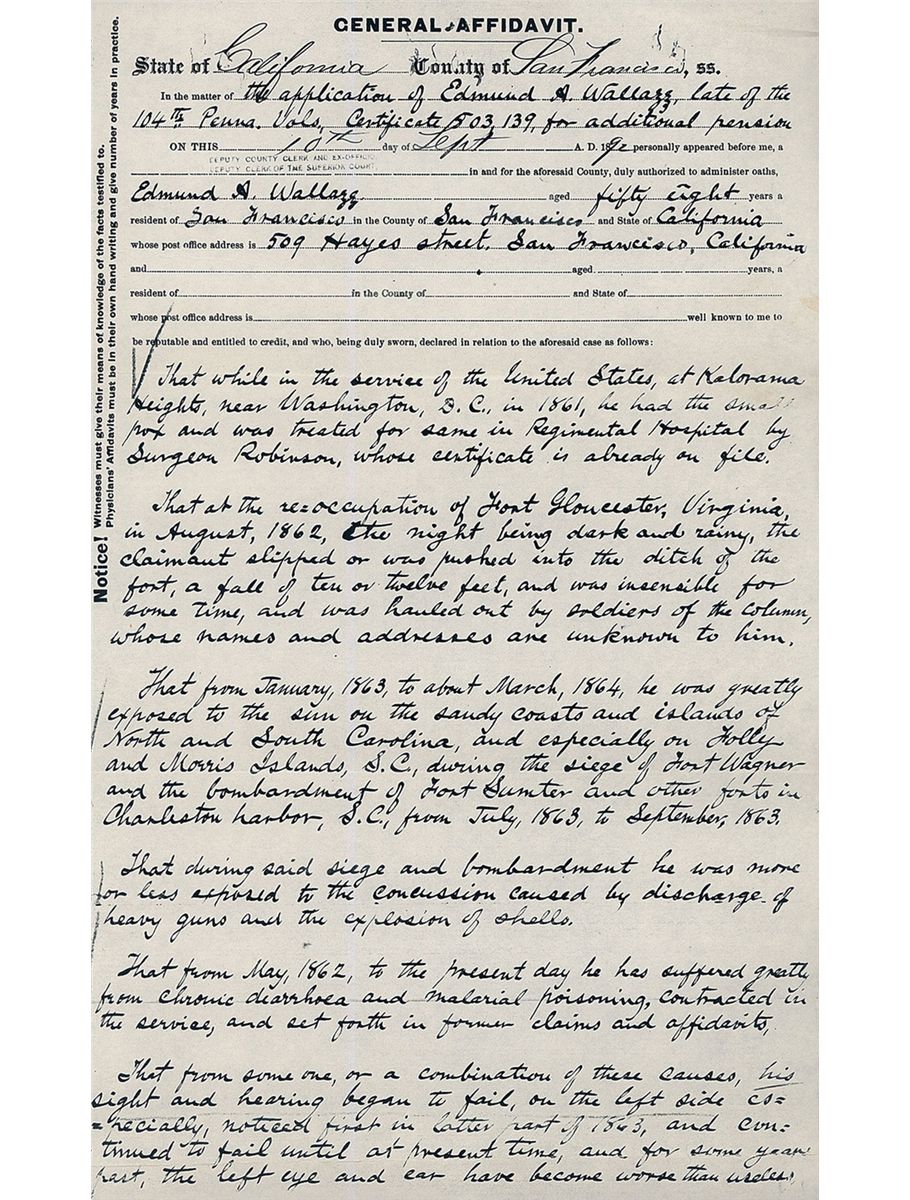 GENERAL AFFIDAVIT.
State of California County of San Francisco, ss.
In the matter of the application of Edmund A. Wallazz, late of the
104th Penna. Vols, Certificate 503,139, for additional pension
ON THIS 10th day of Sept A. D. 1892 personally appeared before me, a
DEPUTY COUNTY CLERK AND EX-OFFICIO
DEPUTY CLERK OF THE SUPERIOR COURT, in and for the aforesaid County, duly authorized to administer oaths,
Edmund A. Wallazz aged fifty eight years a
resident of San Francisco in the County of San Francisco and State of California
whose post office address is 509 Hayes street. San Francisco, California
and aged years, a
resident of in the County of and State of
whose post office address is well known to me to
be reputable and entitled to credit, and who, being duly sworn, declared in relation to the aforesaid case as follows:
That while in the service of the United States, at Kalorama
Heights, near Washington, D.C., in 1861, he had the small
pox and was treated for same in Regimental Hospital by
Surgeon Robinson, whose certificate is already on file.
That at the re=occupation of Fort Gloucester, Virginia,
in August, 1862, the night being dark and rainy, the
claimant slipped or was pushed into the ditch of the
fort, a fall of ten or twelve feet, and was insensible for
some time, and was hauled out by soldiers of the column,
whose names and addresses are unknown to him.
That from January, 1863, to about March, 1864, he was greatly
exposed to the sun on the sandy coasts and islands of
North and South Carolina, and especially on Folly
and Morris Islands, S.C., during the siege of Fort Wagner
and the bombardment of Fort Sumter and other forts in
Charleston harbor, S.C., from July, 1863, to September, 1863.
That during said siege and bombardment he was more
or less exposed to the concussion caused by discharge of
heavy guns and the explosion of shells.
That from May, 1862, to the present day he has suffered greatly
from chronic diarrhoea and malarial poisoning, contracted in
the service, and set forth in former claims and affidavits,
That from some one, or a combination of these causes, his
sight and hearing began to fail, on the left side es=
=pecially, noticed first in latter part of 1863, and con=
tinued to fail until at present time, and for some years
past, the left eye and ear have become worse than useless,
Notice! Witnesses must give their means of knowledge of the facts testified to.
Physicians' Affidavits must be in their own hand writing and give number of years in practice.